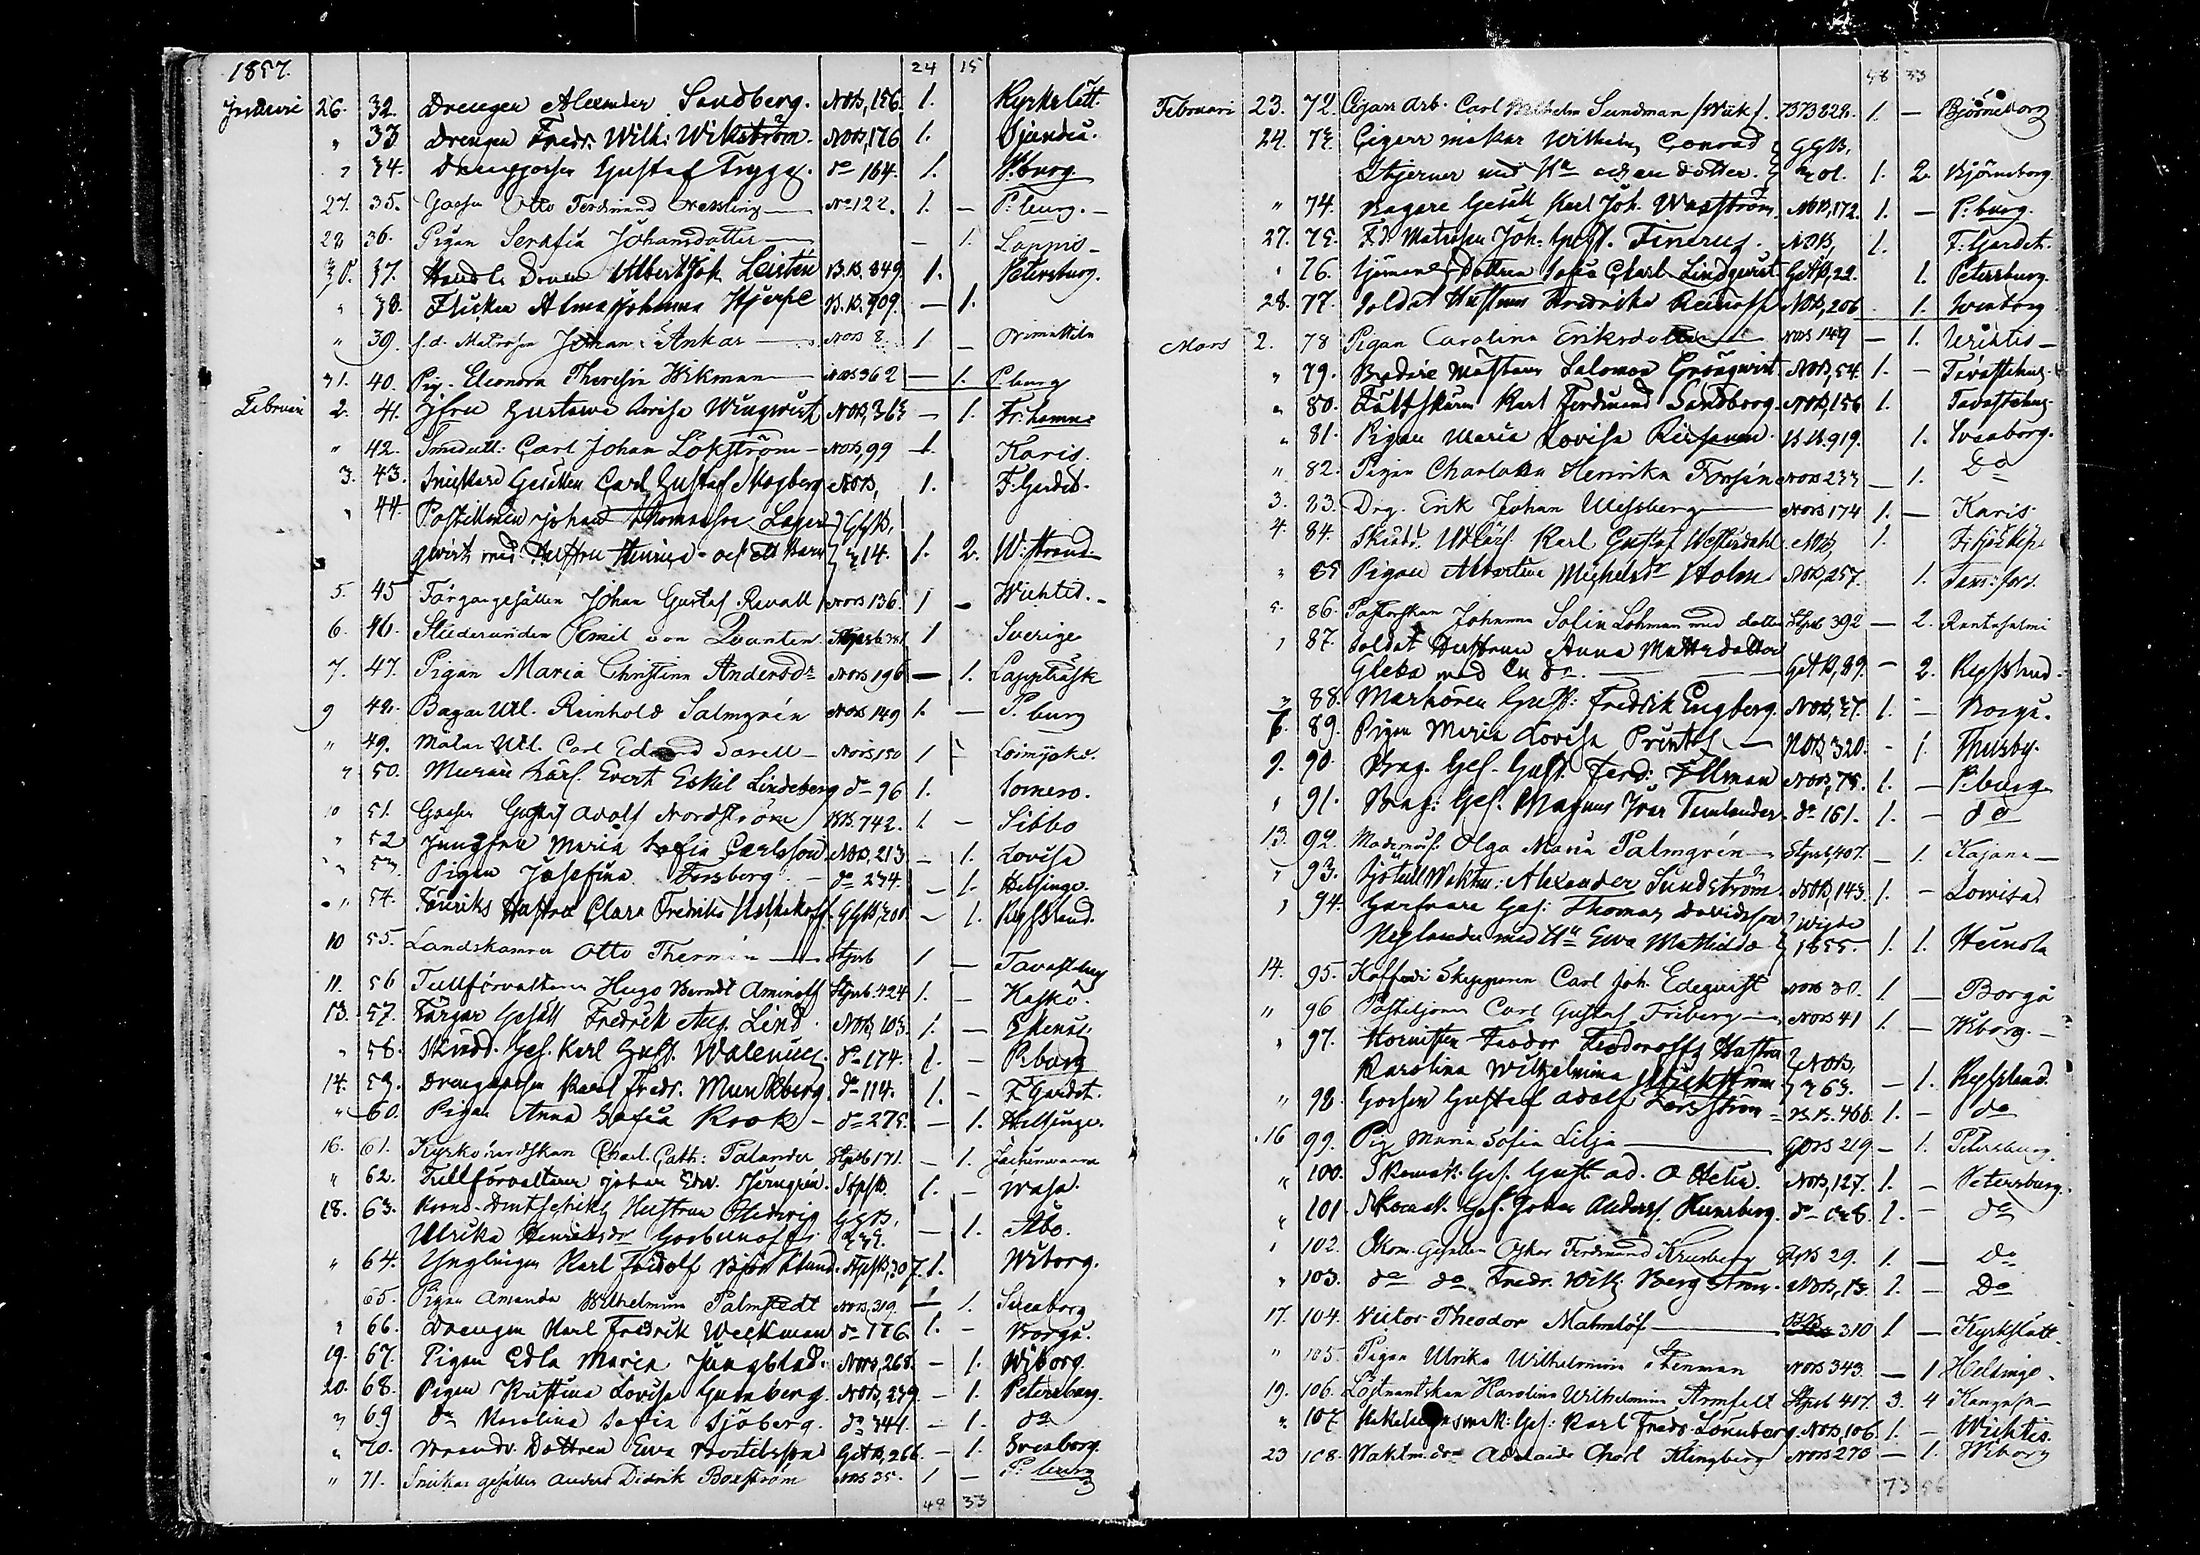 1857. 24 15
Januari 26. 32. Drengen Alexander Sandberg. NOB, 156. 1. Kyrkslätt.
" 33 Drengen Fredr. Wilh: Wikström. NOB, 176 1. Sjundeå.
" 34. Drenggossen Gustaf Trygg. do 164. 1. W:borg
27. 35. Gossen Otto Ferdinand Wessling — No 122. 1. — P:burg. —
28 36. Pigan Serafia Johansdotter — — 1. Loppis —
30. 37. Handl: Albert Joh. Leisten B.B. 849. 1. Petersburg.
" 38. Flickan Alma Johanna Hjerpe B.B. 909. — 1.
" 39. f.d. Matrosen Johan Ankar — NOB 8. 1 — Orimattila
31. 40. Pig. Eleonora Theresia Wikman — NOB 362 — 1. P:burg
Februari 2. 41. Jfru Gustava Lovisa Wingqvist NOB, 363 — 1. Fr:hamn
" 42. Carl Johan Lökström — NOB, 99 1. Karis.
3. 43. Snickare Gesällen Carl Gustaf Skogberg NOB, 1. F:Gardet.
" 44. Postillion Johan Thomasson Lager GGB,
qvist med Hustru Henrica och ett Barn 14. 1. 2. W:strand
5. 45 Färgaregesällen Johan Gustaf Revall NOB 136. 1 — Wichtis. —
6. 46. Studeranden Emil von Qvanten 1 Sverige
7. 47. Pigan Maria Christina Andersdr NOB 196 — 1. Lappträsk
9 48. Bagar Utl. Reinhold Salmgrén NOB 149 1. — P:burg
" 49. Målar Utl. Carl Edvard Sarell — NOB 150 1 — Loimijoki.
" 50. Murare Lärl. Evert Eskil Lindeberg do 96 1. Somero.
" 51. Gossen Gustaf Adolf Nordström BB. 742. 1. — Sibbo
" 52 Jungfru Maria Sofia Carlsson NOB, 213 — 1. Lovisa
" 53. Pigan Josefina Forsberg — do 234. — 1. Helsinge.
" 54. Hustru Clara Fredrika GGB, 201. — 1. Ryssland.
10 55. Landskamrer Otto Thermén — Stpsb 1 — Tavastehus
11. 56 Tullförvaltaren Hugo Berndt Aminoff Stpsb. 424 1. — Kaskö.
13. 57. Färgar Gesäll Fredrik Aug. Lind. NOB, 103. 1. — Ekenäs
" 58. Skrädd. Ges. Karl Gust. Walenius. do 174. 1. — P:burg
14. 59. Drenggossen Karl Fredr. Munkberg. do 114. 1. — F.Gardet.
" 60. Pigan Anna Sofia Rook — do 275. — 1. Helsinge.
16. 61. Kyrkoherdskan Charl. Cath: Talander Stpsb 171. — 1.
" 62. Tullförvaltaren Johan Edv. Stjerngrén. Stpsb. 1. — Wasa.
18. 63. Hustrun Hedvig GGB,
Ulrika Henriksdr Gorbunoff — 1. Åbo.
" 64. Ynglingen Karl Fridolf Björklund. StpsB, 307. 1. Wiborg.
65. Pigan Amanda Wilhelmina Palmstedt NOB, 319. — 1. Sveaborg
" 66. Drengen Karl Fredrik Weckman do 176. 1. — Borgå.
19. 67. Pigan Edla Maria Jungblad. NOB, 268. — 1. Wiborg.
20. 68. Pigan Kristina Lovisa Granberg. NOB, 239. — 1. Petersburg.
" 69 do Karolina Sofia Sjöberg. do 341. — 1. do
" 70. Dottren Ewa GetB, 266. — 1. Sveaborg.
" 71. Snickar gesällen Anders Didrik Boxström NOB 35. 1 — P:burg
48 33
48 33
Februari 23. 72. Cigarr Arb. Carl Wilhelm Sundman /Wiik/. BB 822. 1. — Björneborg
24. 73. Cigarr makar Wilhelm Conrad GGB,
Stjerner med Hu och en dotter. 201. 1. 2. Björneborg.
" 74. Bagare Gesäll Karl Joh. Wasström NOB, 172. 1. — P:burg.
27. 75. F.d. Matrosen Joh. Gust. Finerus. NOB, 1. F:Gardet.
" 76. Sjöman Dottren Sofia Charl. Lindqvist GetB, 22. 1. Petersburg.
28. 77. Soldat Hustrun Fredrika NOB, 206 1. Sveaborg
Mars 2. 78 Pigan Carolina Eriksdotter NOB 149 — 1. Wichtis —
" 79. Mästaren Salomon Grönqvist NOB, 54. 1. — Tavastehus.
" 80. Fältskären Karl Ferdinand Sandborg. NOB, 156 1. Tavastehus.
" 81. Pigan Maria Lovisa BB. 919. 1. Sveaborg.
" 82. Pigan Charlotta Henrika Forssén NOB 233 — 1. Do
3. 83. Drg. Erik Johan Wessberg NOB 174 1. — Karis.
4. 84. Skrädd. Utlärl. Karl Gustaf Westerdahl. NOB, 1.
" 85 Pigan Albertina Michelsdr Holm. NOB, 257. 1.
5. 86. Pastorskan Johanna Sofia Lohman med dotter Stpsb 392 — 2. Rantasalmi
" 87. Soldat Hustrun Anna Mattsdotter
Gleba med en dr. — GetB, 89. — 2. Ryssland.
" 88. Markören Gust: Fredrik Engberg. NOB, 37. 1. — Borgå.
6. 89. Pigan Maria Lovisa Printz — NOB 320. — 1. Thusby.
9. 90. Brag. Ges. Gust. Ferd: Ellman NOB, 75. 1. — P:burg
" 91. Brag: Ges. Magnus Ivar Tumlander. do 161. 1. — do
13. 92. Mademois. Olga Maria Palmgrén — Stpsb, 407. — 1. Kajana —
" 93. Sjötull Waktm: Alexander Sundström. NOB, 143. 1. — Lovisa.
" 94. Garfvare Ges: Thomas Davidsson
Neglander med Hu Ewa Mathilda 1855. 1. 1. Heinola
14. 95. Koffardi Skepparen Carl Joh. Edeqvist NOB 30. 1. — Borgå
" 96 Postiljonen Carl Gustaf Friberg — NOB 41 1. — Wiborg. —
" 97. Hornisten Feodor Feodoroffs Hustru NOB,
Karolina Wilhelmina 363. — 1. Ryssland.
" 98. Gossen Gustaf Adolf Forsström — B.B. 466. 1. — do
16 99. Pig. Maria Sofia Lilja — GOB 219 — 1. Petersburg.
" 100. Skomak. Ges. Gust. Ad. O Helin. NOB, 127. 1. — Petersburg.
" 101. Skomak. Ges. Johan Anders. Runeberg. do 128. 1. — do
" 102. Skom. Gesällen Oskar Ferdinand Kruseberg 29. 1. — Do
" 103. do do Fredr. Wilh. Bergström. NOB, 13. 1. — Do
17. 104. Victor Theodor Malmlöf — BB 310 1. — Kyrkslätt.
" 105. Pigan Ulrika Wilhelmina Stenman NOB 343 — 1 Helsinge.
19. 106. Löjtnantskan Karolina Wilhelmina Armfelt Stpsb 417. 3. 4 Kangasa —
" 107. Kakelugnsmak: Ges: Karl Fredr. Lönnberg. NOB, 106 1. — Wichtis.
23 108. Waktm. dr Adelaide Charl. Klingberg NOB 270 — 1. Wiborg
73 56